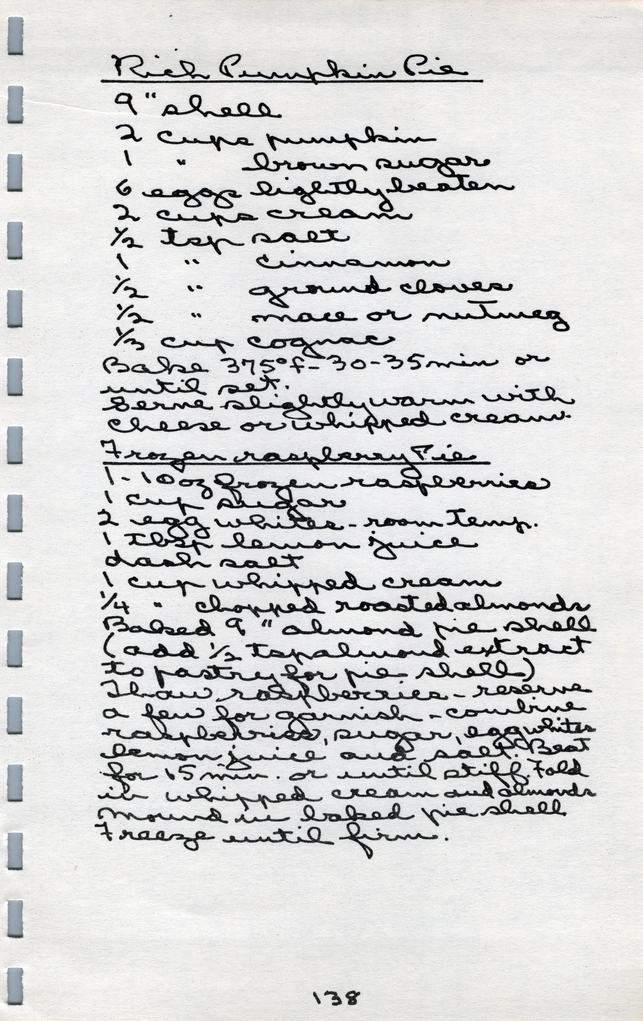 Rich Pumpkin Pie
9" shell
2 cups pumpkin
1 " brown sugar
6 eggs lightly beaten
2 cups cream
1/2 tsp salt
1 " cinnamon
1/2 " ground cloves
1/2 " mace or nutmeg
1/3 cup cognac
Bake 375°f-30-35 min or
until set.
Serve slightly warm with
cheese or whipped cream.
Frozen raspberry Pie
1-10oz frozen raspberries
1 cup sugar
2 egg whites-room temp.
1 tbsp lemon juice
dash salt
1 cup whipped cream
1/4 " chopped roasted almonds
Baked 9" almond pie shell
(add 1/2 tsp almond extract
to pastry for pie shell)
Thaw raspberries-reserve
a few for garnish-combine
raspberries, sugar, egg whites
lemon juice and salt. Beat
for 15 min. or until stiff. Fold
in whipped cream and almonds
Mound in baked pie shell
Freeze until firm.
138